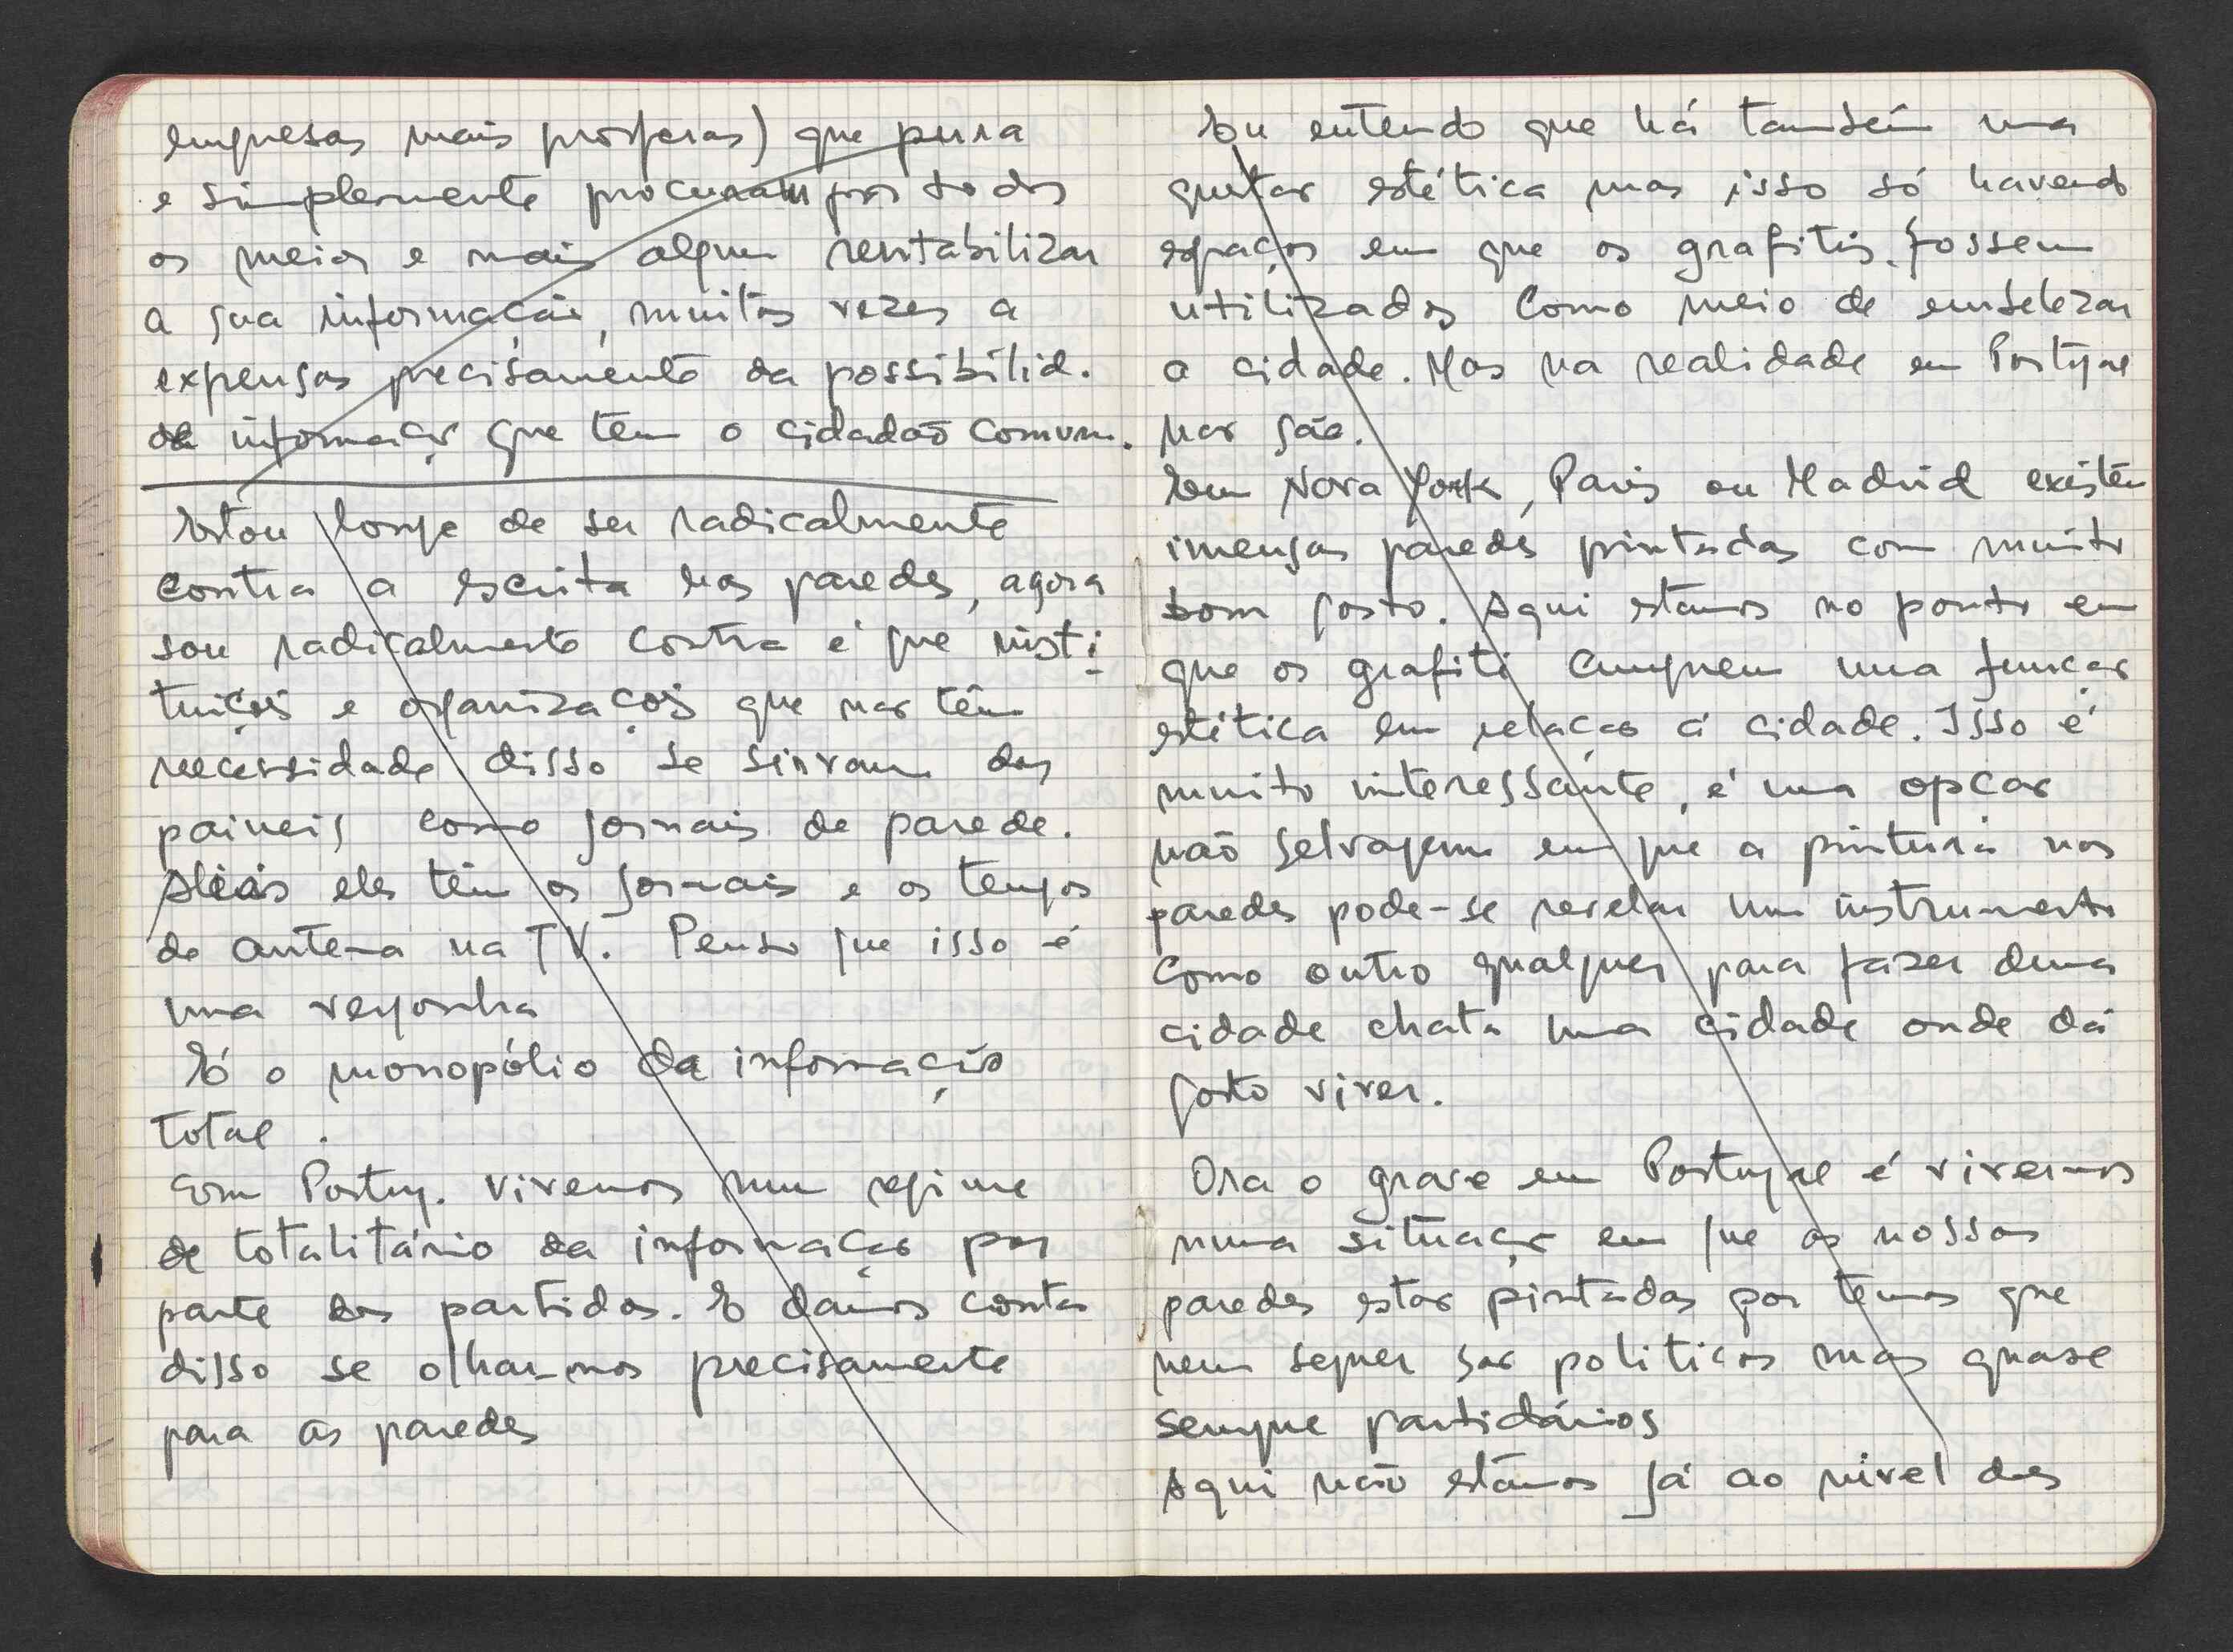 empresas mais prósperas) que pura
e simplesmente procuram por todos
os meios e mais algum rentabilizar
a sua informação, muitas vezes a
expensas precisamente da possibilid.
de informação que tem o cidadão comum.
Estou longe de ser radicalmente
contra a escrita nas paredes, agora
sou radicalmente contra é que insti-
tuições e organizações que não têm
necessidade disso se sirvam das
paineis como jornais de parede.
Aliás eles têm os jornais e os tempos
de antena na TV. Penso que isso é
uma vergonha
É o monopólio da informação
total.
Em Portug. vivemos num regime
de totalitário da informação por
parte dos partidos. E damos conta
disso se olharmos precisamente
para as paredes
Eu entendo que há também uma
questão estética mas isso só havendo
espaços em que os grafitis fossem
utilizados como meio de embelezar
a cidade. Mas na realidade em Portugal
não são.
Em Nova York, Paris ou Madrid existem
imensas paredes pintadas com muito
bom gosto. Aqui estamos no ponto em
que os grafiti cumprem uma função
estética em relação à cidade. Isso é
muito interessante, é uma opção
não selvagem em que a pintura nas
paredes pode-se revelar um instrumento
como outro qualquer para fazer duma
cidade chata uma cidade onde dá
gosto viver.
Ora o grave em Portugal é vivermos
numa situação em que as nossas
paredes estão pintadas por temas que
nem sequer são politicos mas quase
sempre partidários
Aqui não estamos já ao nivel das